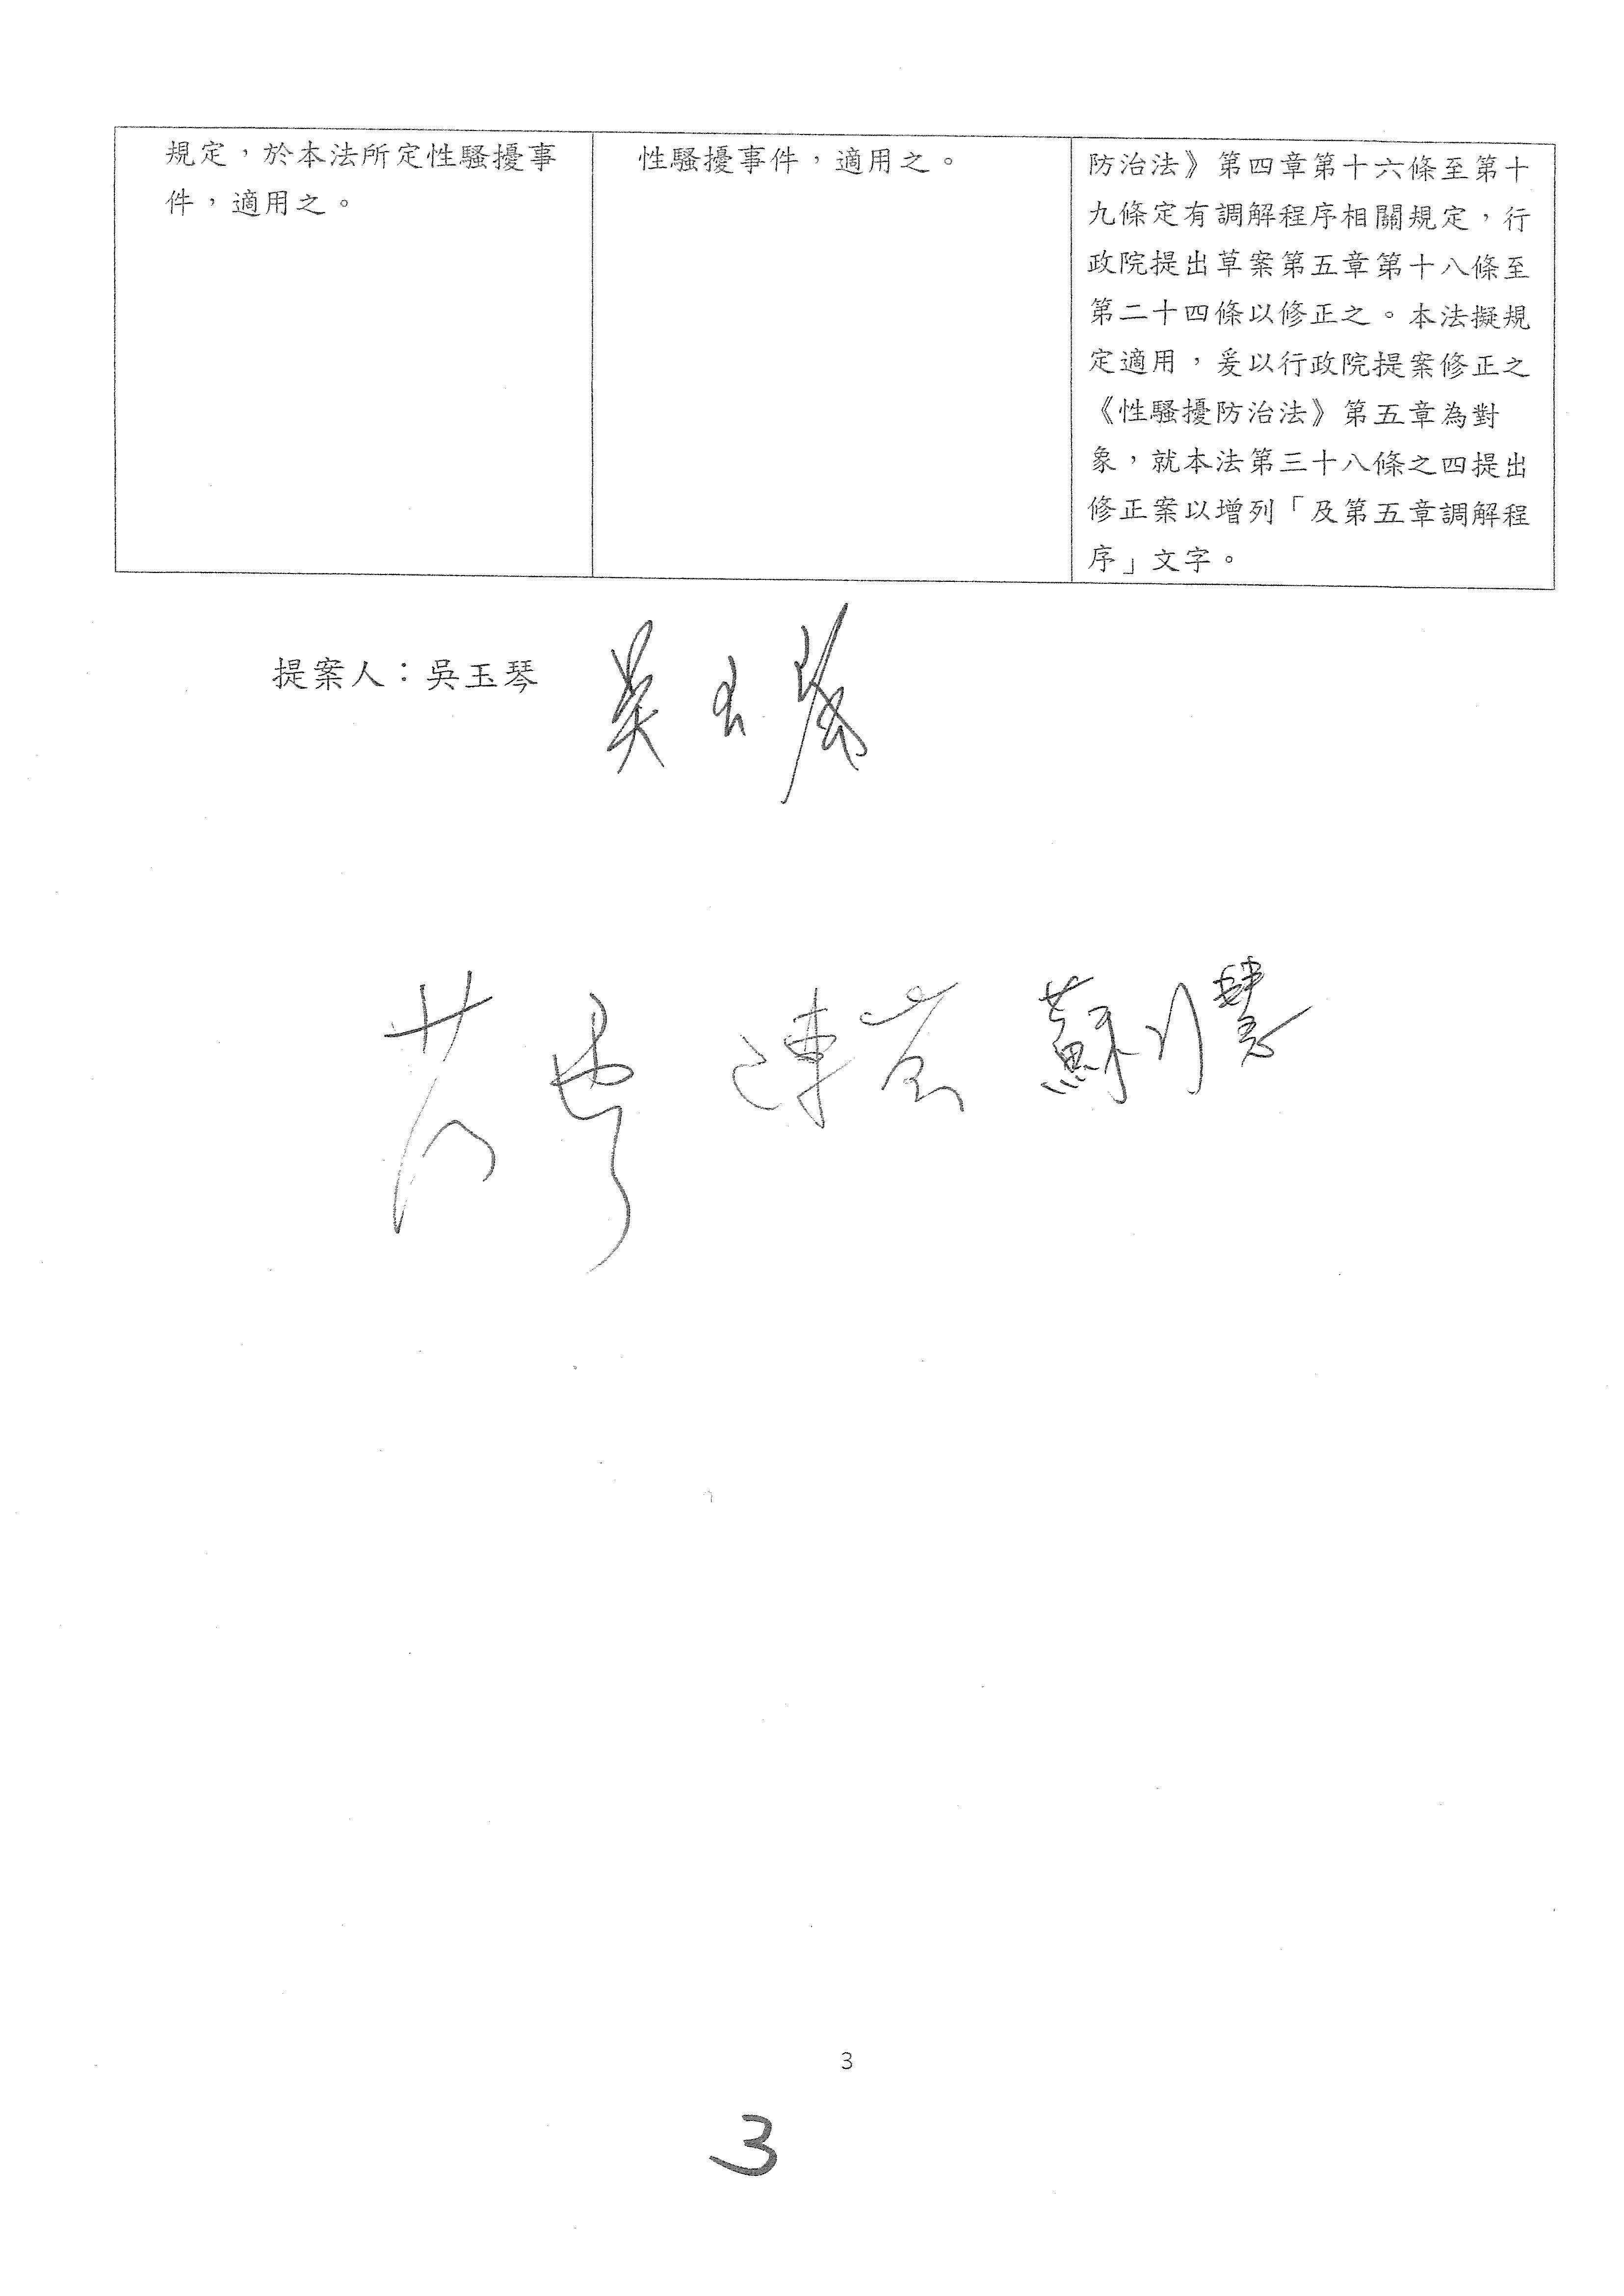 規定，於本法所定性騷擾事
件，適用之。
性騷擾事件，適用之。
防治法》第四章第十六條至第十
九條定有調解程序相關規定，行
政院提出草案第五章第十八條至
第二十四條以修正之。本法擬規
定適用，爰以行政院提案修正之
《性騷擾防治法》第五章為對
象，就本法第三十八條之四提出
修正案以增列「及第五章調解程
序」文字。
提案人：吳玉琴 吳玉琴
蘇巧慧
3
3